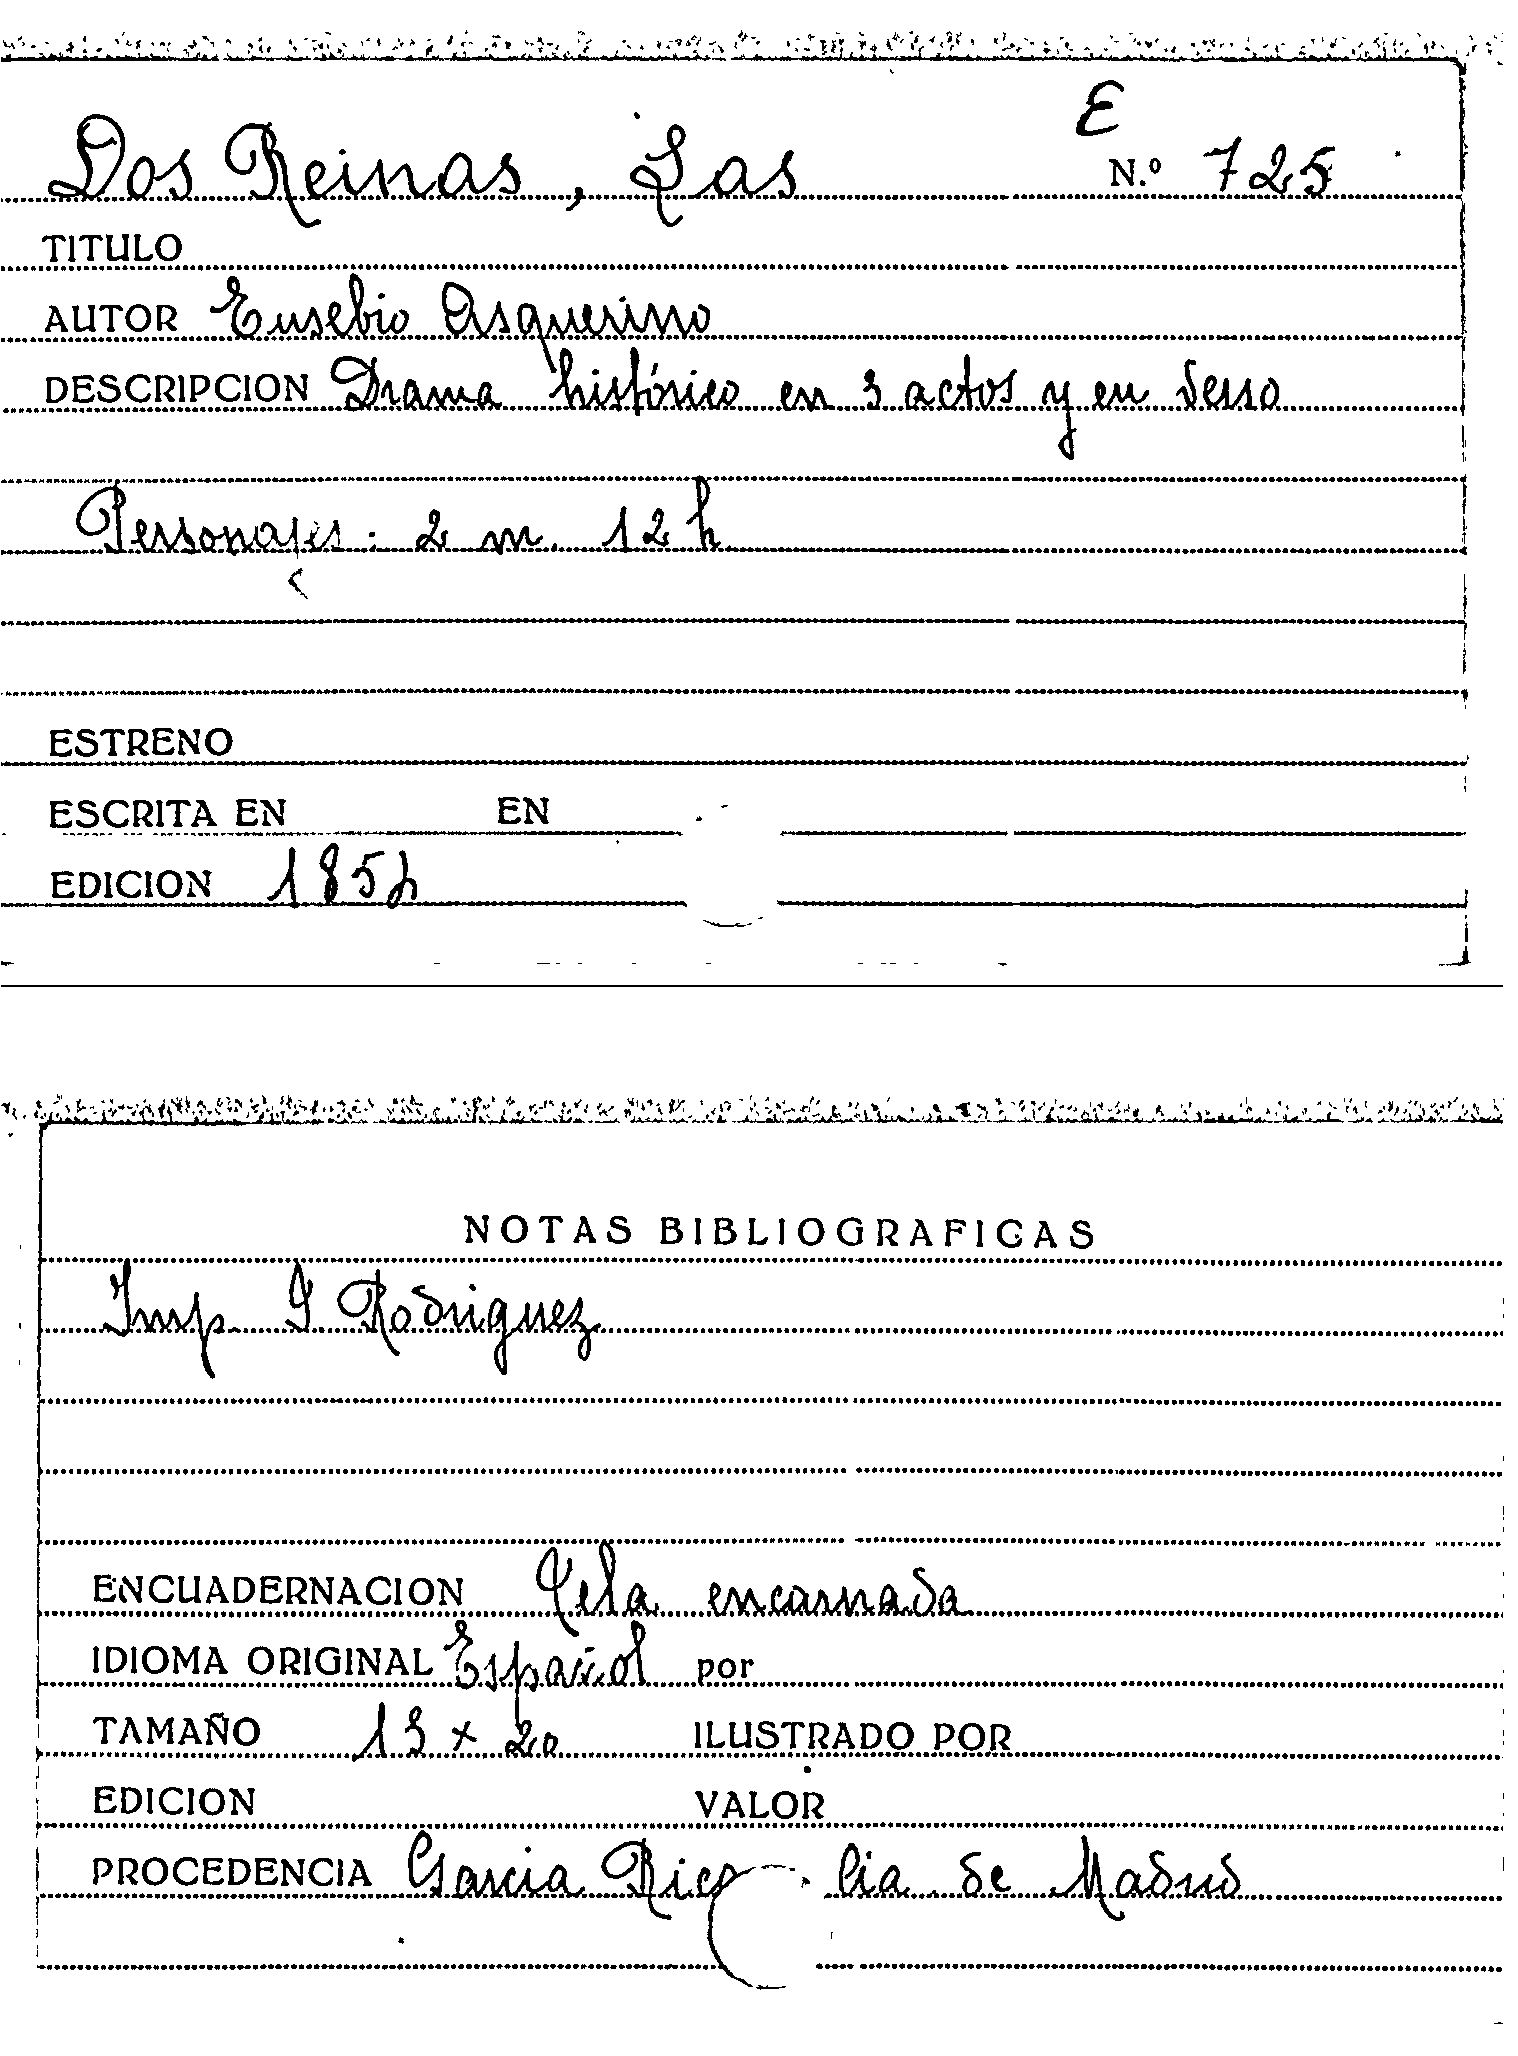 E
Dos Reinas, Las N.º 725
TITULO
AUTOR Eusebio Asquerino
DESCRIPCION Drama histórico en 3 actos y en verso
Personajes: 2 m. 12 h
ESTRENO
ESCRITA EN EN
EDICION 1854
NOTAS BIBLIOGRAFICAS
Imp. Rodriguez
ENCUADERNACION Tela encarnada
IDIOMA ORIGINAL Español por
TAMAÑO 13 x 20 ILUSTRADO POR
EDICION VALOR
PROCEDENCIA Garcia Rico Cia. de Madrid